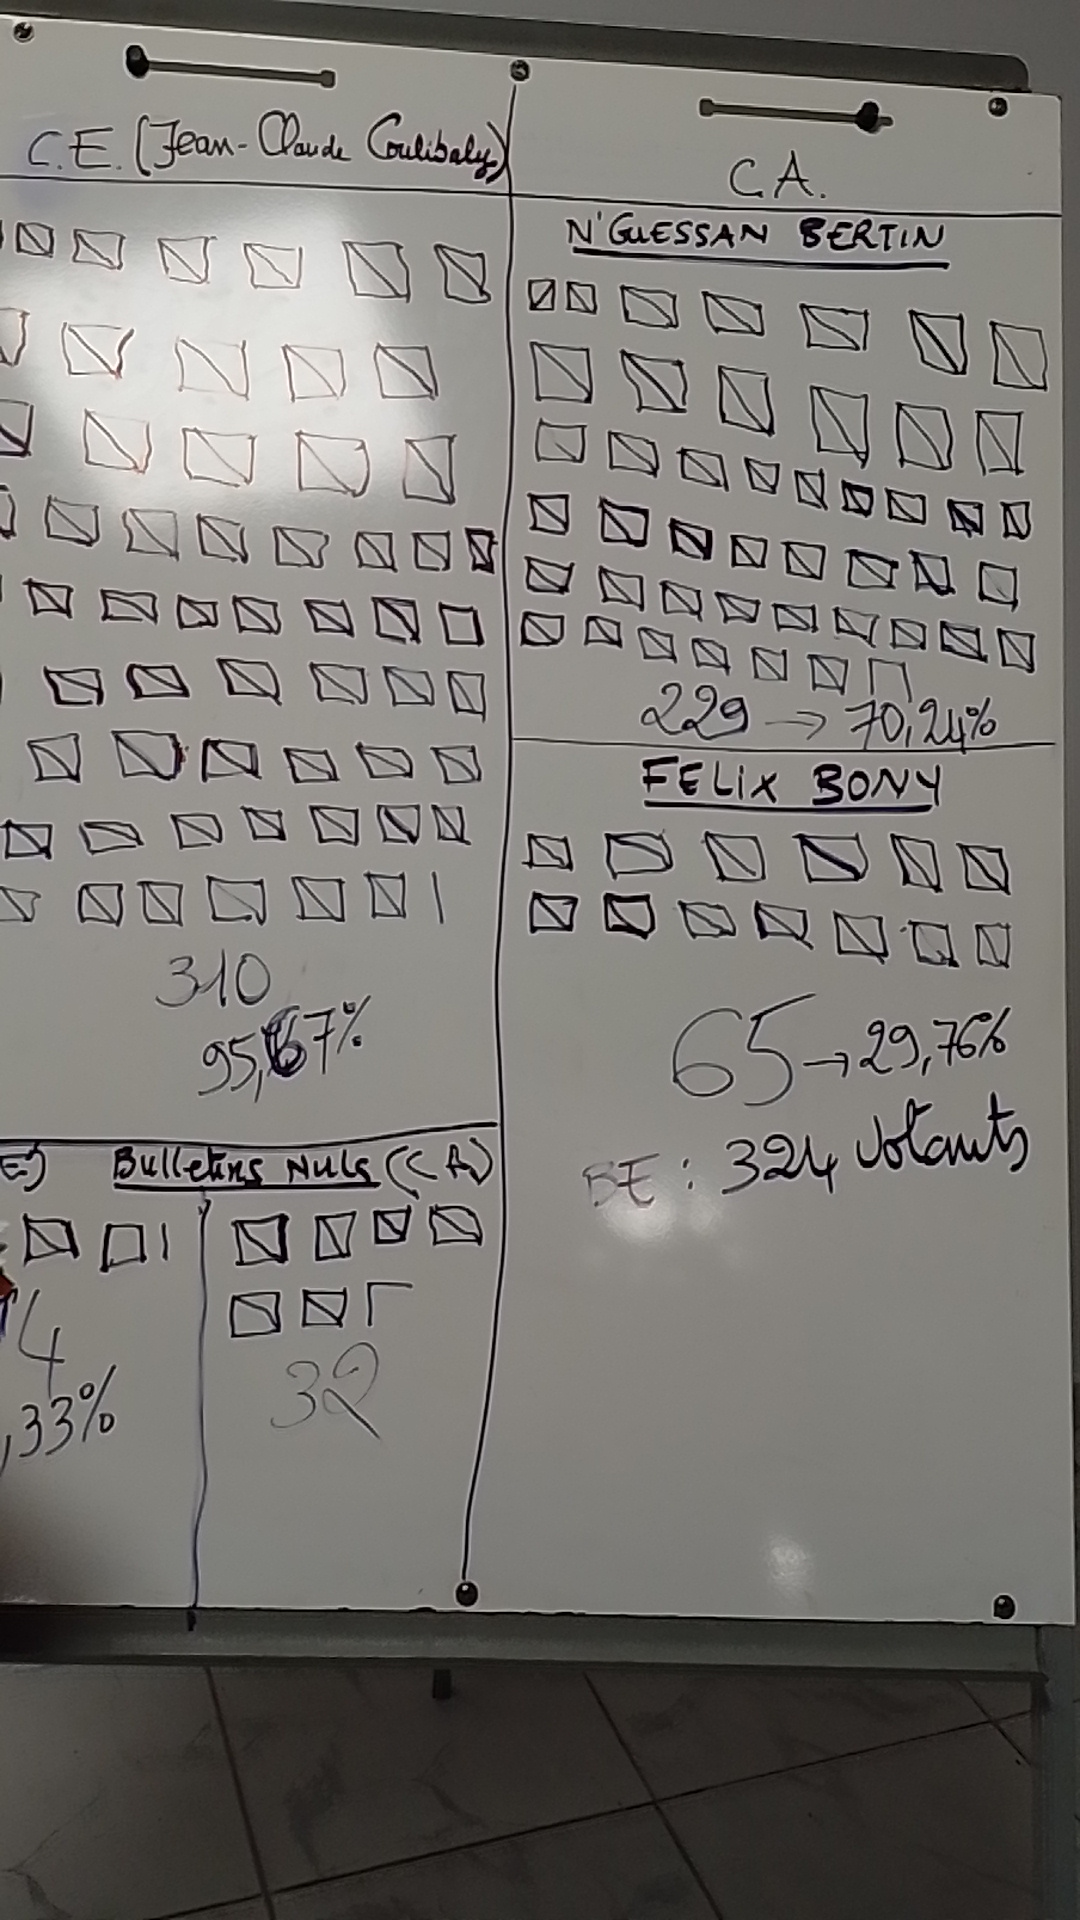 C.E. (Jean-Claude Coulibaly)
310
95,67%
E)
Bulletins Nuls (CA)
4
,33%
32
C A.
N'GUESSAN BERTIN
229 → 70,24%
FELIX BONY
65 → 29,76%
BE : 324 votants